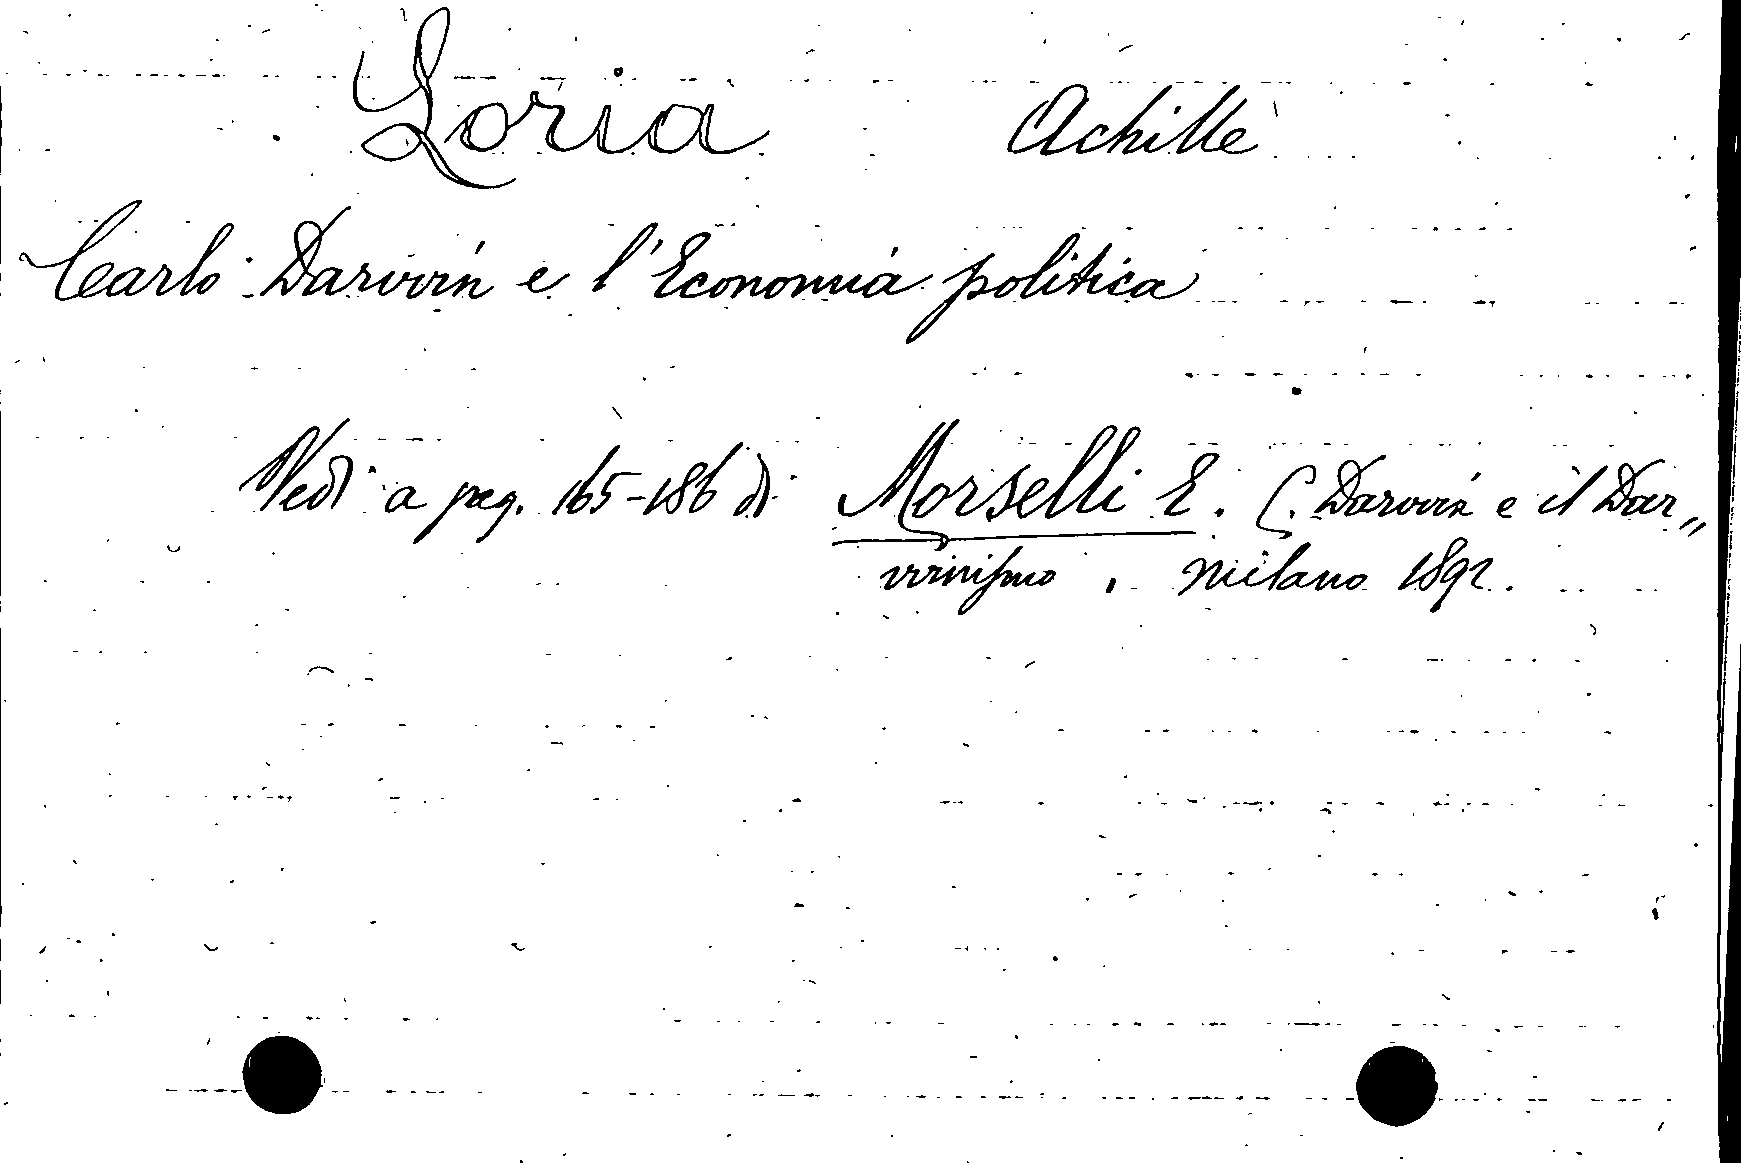 Loria Achille
Carlo Darwin e l'Economia politica
Vedi a pag. 165-186 di Morselli E. C. Darwin e il Dar„
winismo, Milano 1892.